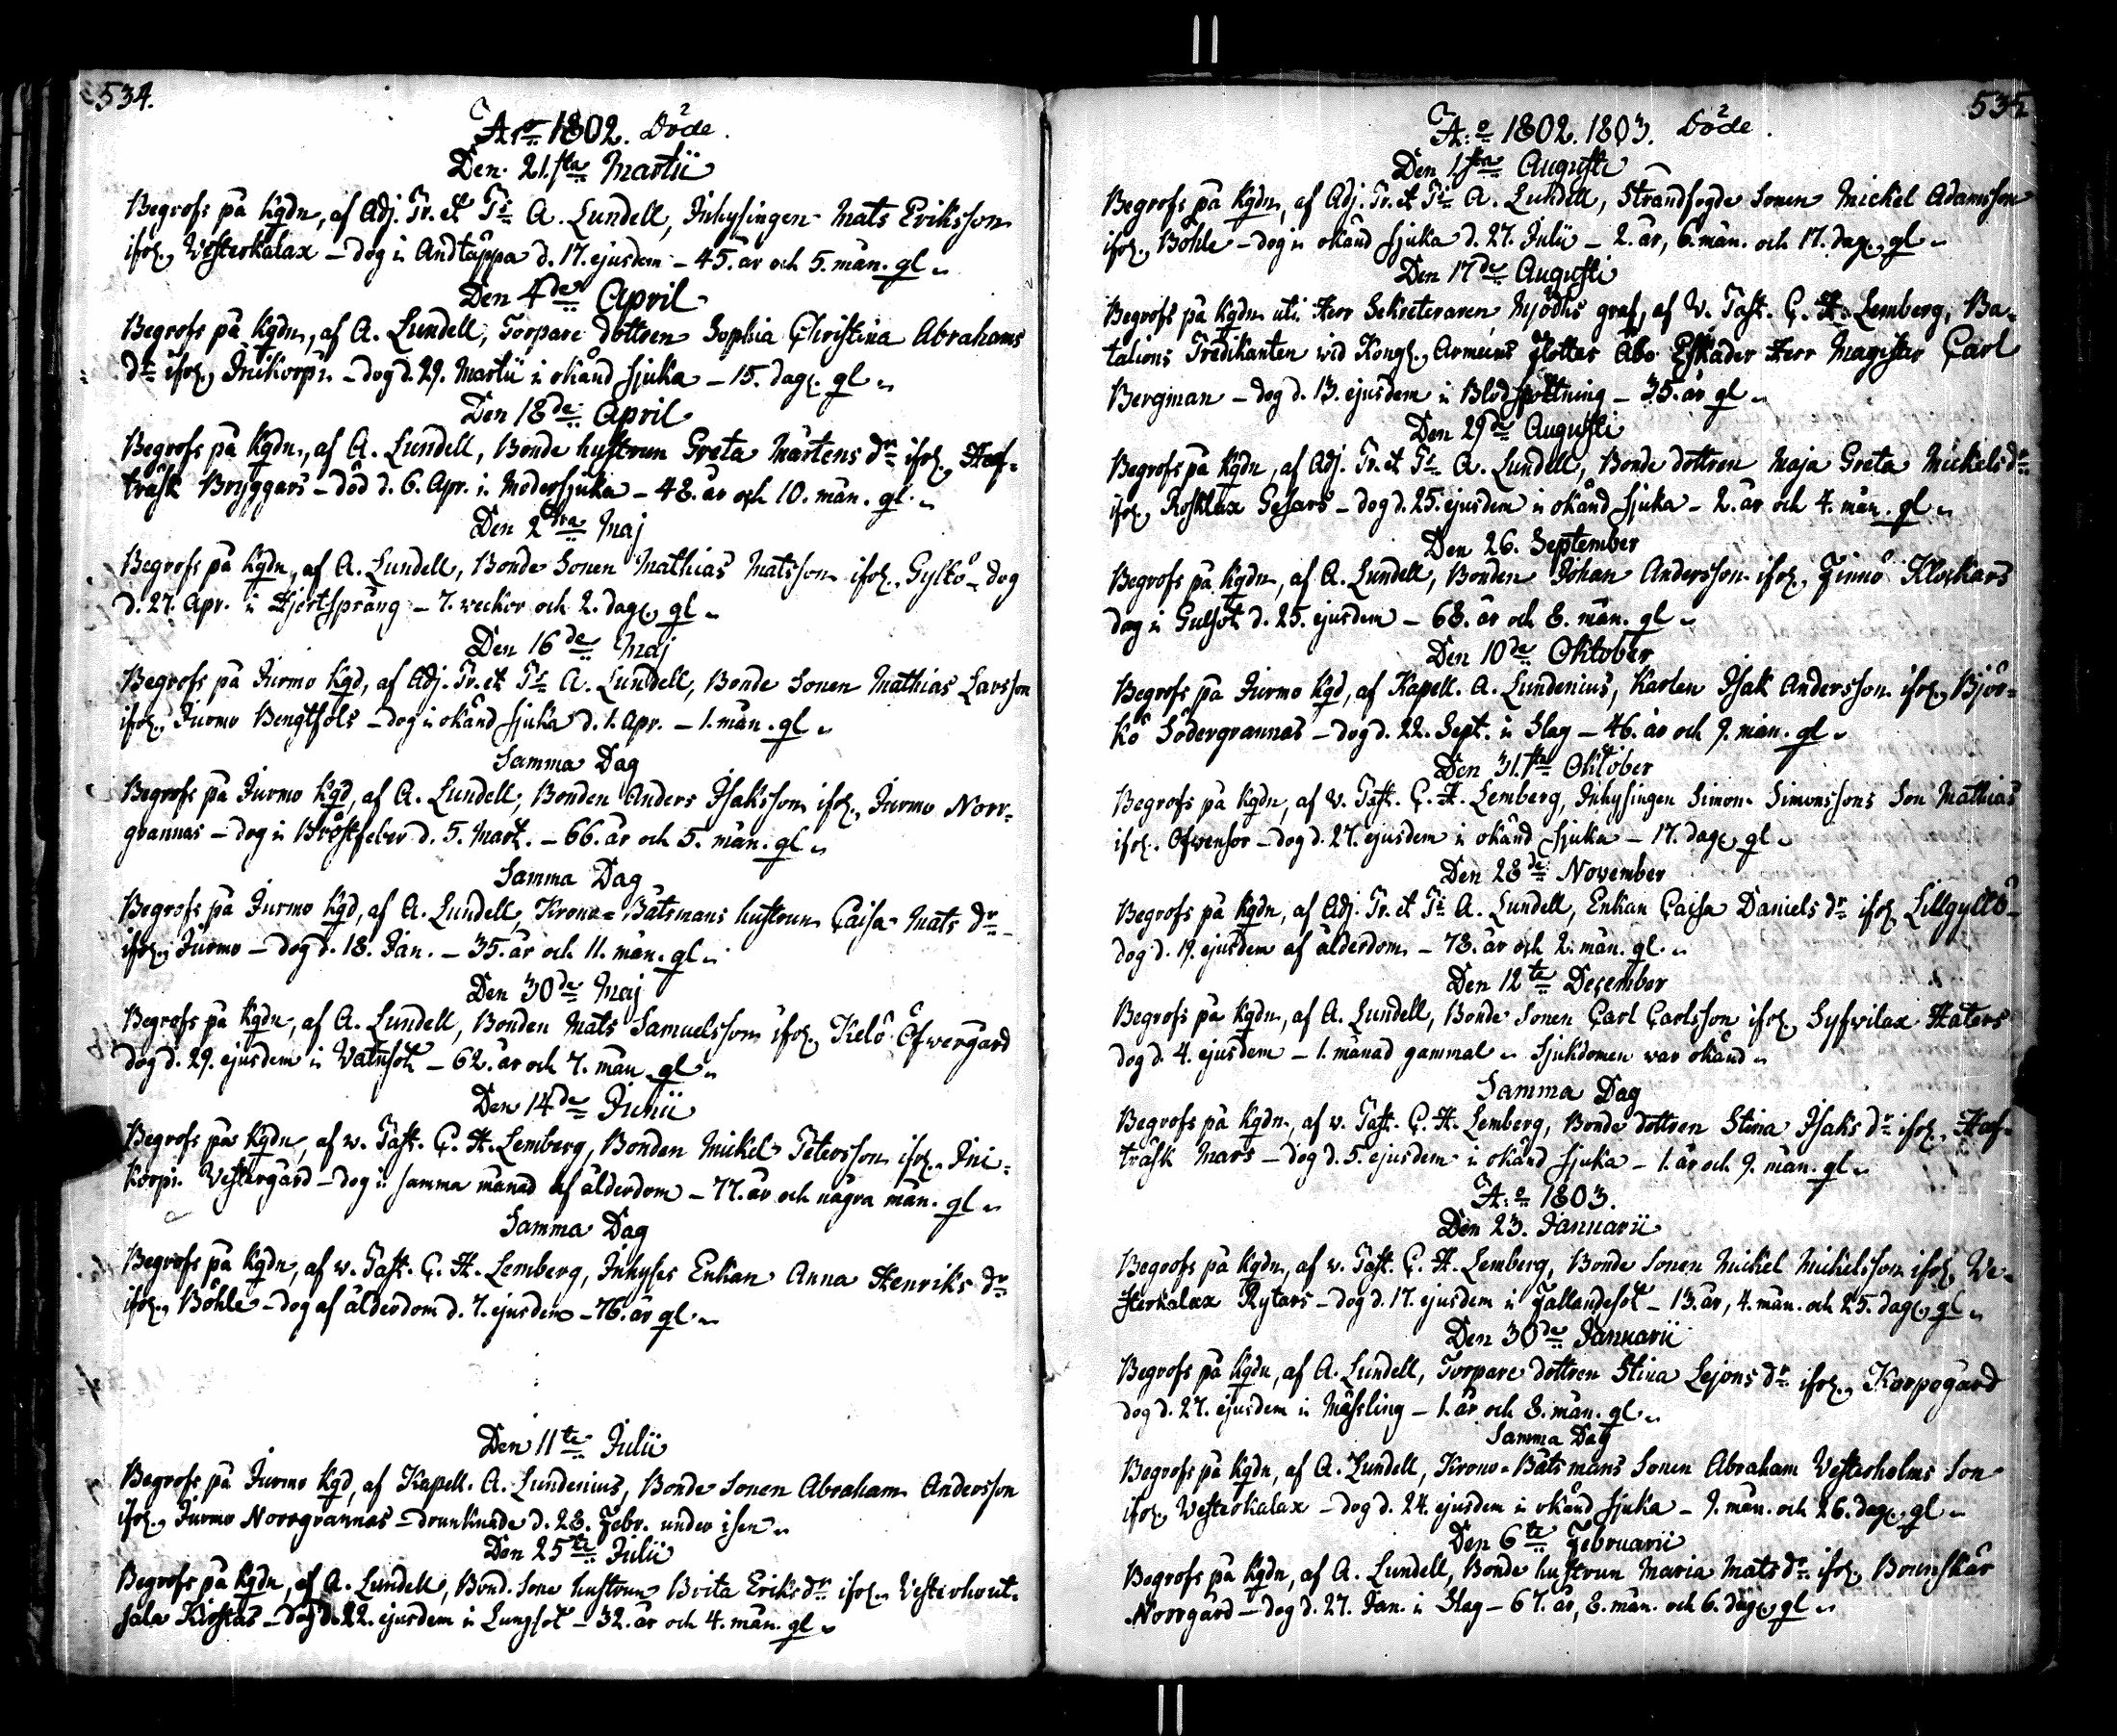 534.
A:o 1802. Döde.
Den 21.sta Martii
Begrofs på Kgdn, af Adj. Pr. et Ps A. Lundell, Inhysingen Mats Eriksson
ifr. Vesterkalax – dog i Andtäppa d. 17. ejusdem – 45. år och 5. mån. gl.
Den 4de April
Begrofs på Kgdn, af A. Lundell, Torpare dottren Sophia Christina Abrahams
dr ifr. Inikorpi – dog d. 29. Martii i okänd sjuka – 15. dag. gl.
Den 18de April
Begrofs på Kgdn, af A. Lundell, Bonde hustrun Greta Mårtens dr ifr. Haf-
träsk Bryggars – död d. 6. Apr. i Modersjuka – 48. år och 10. mån. gl.
Den 2dra Maj
Begrofs på Kgdn, af A. Lundell, Bonde Sonen Mathias Matsson ifr. Gyltö – dog
d. 27. Apr. i Hjertsprång – 7. veckor och 2. dag. gl.
Den 16de Maj
Begrofs på Jurmo Kgd, af Adj. Pr. et Ps A. Lundell, Bonde Sonen Mathias Larsson
ifr. Jurmo Bengtsols – dog i okänd sjuka d. 1. Apr. – 1. mån. gl.
Samma Dag
Begrofs på Jurmo Kgd, af A. Lundell, Bonden Anders Isaksson ifr. Jurmo Norr-
grannas – dog i Bröstfeber d. 5. Mart. – 66. år och 5. mån. gl.
Samma Dag
Begrofs på Jurmo Kgd, af A. Lundell, Krono-Båtsmans hustrun Caisa Mats dr
ifr. Jurmo – dog d. 18. Jan. – 35. år och 11. mån. gl.
Den 30de Maj
Begrofs på Kgdn, af A. Lundell, Bonden Mats Samuelsson ifr. Kelö Öfvergård
dog d. 29. ejusdem i Vatusot – 62. år och 7. mån gl.
Den 14de Junii
Begrofs på Kgdn, af v. Past. C. H. Lemberg, Bonden Mickel Petersson ifr. Ini-
korpi Vestergård – dog i samma månad af ålderdom – 77. år och några mån. gl.
Samma Dag
Begrofs på Kgdn, af v. Past. C. H. Lemberg, Inhyses Enkan Anna Henriks dr
ifr. Böhle – dog af ålderdom d. 7. ejusdem – 76. år gl.
Den 11te Julii
Begrofs på Jurmo Kgd, af Kapell. A. Lundenius, Bonde Sonen Abraham Andersson
ifr. Jurmo Norrgrannas – drunknade d. 28. Febr. under isen
Den 25te Julii
Begrofs på Kgdn, af A. Lundell, Bond. Sone hustrun Brita Eriksdr ifr. Vesterhout-
sala Kirstas – dog d. 22. ejusdem i Lungsot – 32. år och 4. mån. gl.
535
A:o 1802. 1803. Döde.
Den 1.sta Augusti
Begrofs på Kgdn, af Adj. Pr. et Ps A. Lundell, Strandfogde Sonen Mickel Adamsson
ifr. Böhle – dog i okänd sjuka d. 27. Julii – 2. år, 6. mån. och 17. dag. gl.
Den 17de Augusti
Begrofs på Kgdn uti Herr Sekreteraren Mjödhs graf, af V. Past. C. H. Lemberg, Ba-
talions Predikanten wid Kongl. Armeens flottas Åbo Eskader Herr Magister Carl
Bergman – dog d. 13. ejusdem i Blodspottning – 35. år gl.
Den 29de Augusti
Begrofs på Kgdn, af Adj. Pr. et Ps A. Lundell, Bonde dottren Maja Greta Mickelsdr
ifr. Rosklax Gesars – dog d. 25. ejusdem i okänd sjuka – 2. år och 4. mån. gl.
Den 26. September
Begrofs på Kgdn, af A. Lundell, Bonden Johan Andersson ifr. Finnö Klockars
dog i Gulsot d. 25. ejusdem – 68. år och 8. mån. gl.
Den 10de Oktober
Begrofs på Jurmo Kgd, af Kapell. A. Lundenius, Karlen Isak Andersson ifr. Björ-
kö Södergrannas – dog d. 22. Sept. i Slag – 46. år och 9. mån. gl.
Den 31.sta Oktober
Begrofs på Kgdn, af V. Past. C. H. Lemberg, Inhysingen Simon Simonssons Son Mathias
ifr. Ofvensor – dog d. 27. ejusdem i okänd sjuka – 17. dag. gl.
Den 28de November
Begrofs på Kgdn, af Adj. Pr. et Ps A. Lundell, Enkan Caisa Daniels dr ifr. Lillgyltö –
dog d. 19. ejusdem af ålderdom – 78. år och 2. mån. gl.
Den 12te December
Begrofs på Kgdn, af A. Lundell, Bonde Sonen Carl Carlsson ifr. Syfvilax Haters
dog d. 4. ejusdem – 1. månad gammal. Sjukdomen war okänd
Samma Dag
Begrofs på Kgdn, af v. Past. C. H. Lemberg, Bonde dottren Stina Isaks dr ifr. Haf-
träsk Mars – dog d. 5. ejusdem i okänd sjuka – 1. år och 9. mån. gl.
A:o 1803.
Den 23. Januarii
Begrofs på Kgdn, af v. Past. C. H. Lemberg, Bonde Sonen Mickel Mickelsson ifr. Ve-
sterkalax Rytars – dog d. 17. ejusdem i Fallandesot – 13. år, 4. mån. och 25. dag. gl.
Den 30de Januarii
Begrofs på Kgdn, af A. Lundell, Torpare dottren Stina Lejons dr ifr. Korpogård
dog d. 27. ejusdem i Mässling – 1. år och 8. mån. gl.
Samma Dag
Begrofs på Kgdn, af A. Lundell, Krono-Båtsmans Sonen Abraham Vesterholms Son
ifr. Vesterkalax – dog d. 24. ejusdem i okänd sjuka – 9. mån. och 26. dag. gl.
Den 6te Februarii
Begrofs på Kgdn, af A. Lundell, Bonde hustrun Maria Matsdr ifr. Brunskär
Norrgård – dog d. 27. Jan. i Slag – 67. år, 8. mån. och 6. dag. gl.